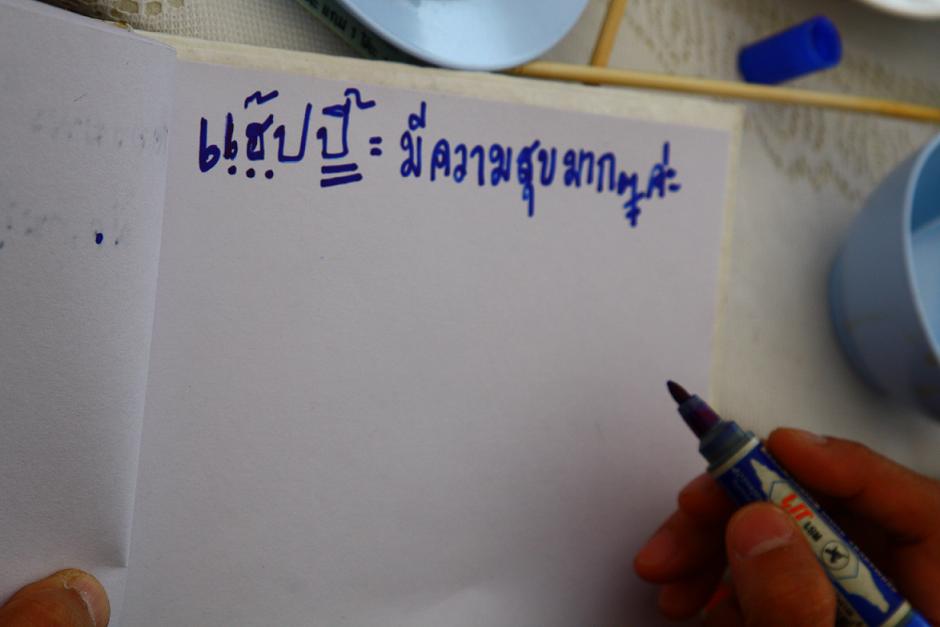 แฮ๊ปปี้ = มีความสุขมากๆ ค่ะ